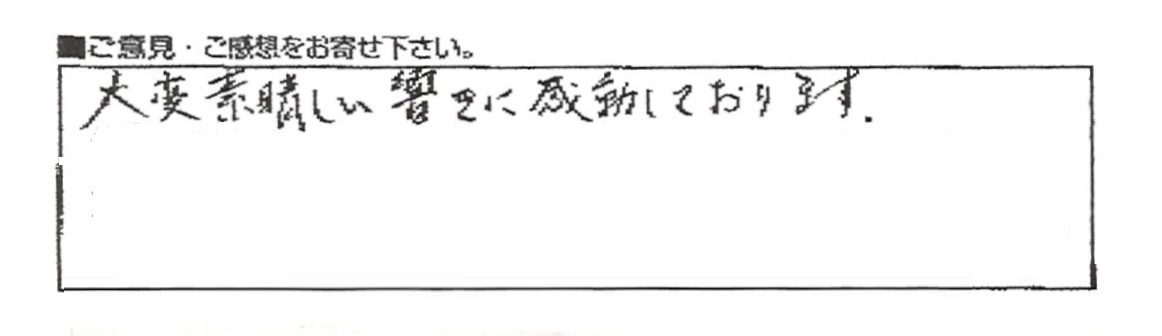 ■ご意見・ご感想をお寄せ下さい。
大変素晴しい響きに感動しております.